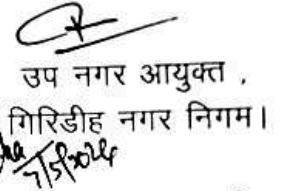 उप नगर आयुक्त ,
गिरिडीह नगर निगम।
7/5/2024